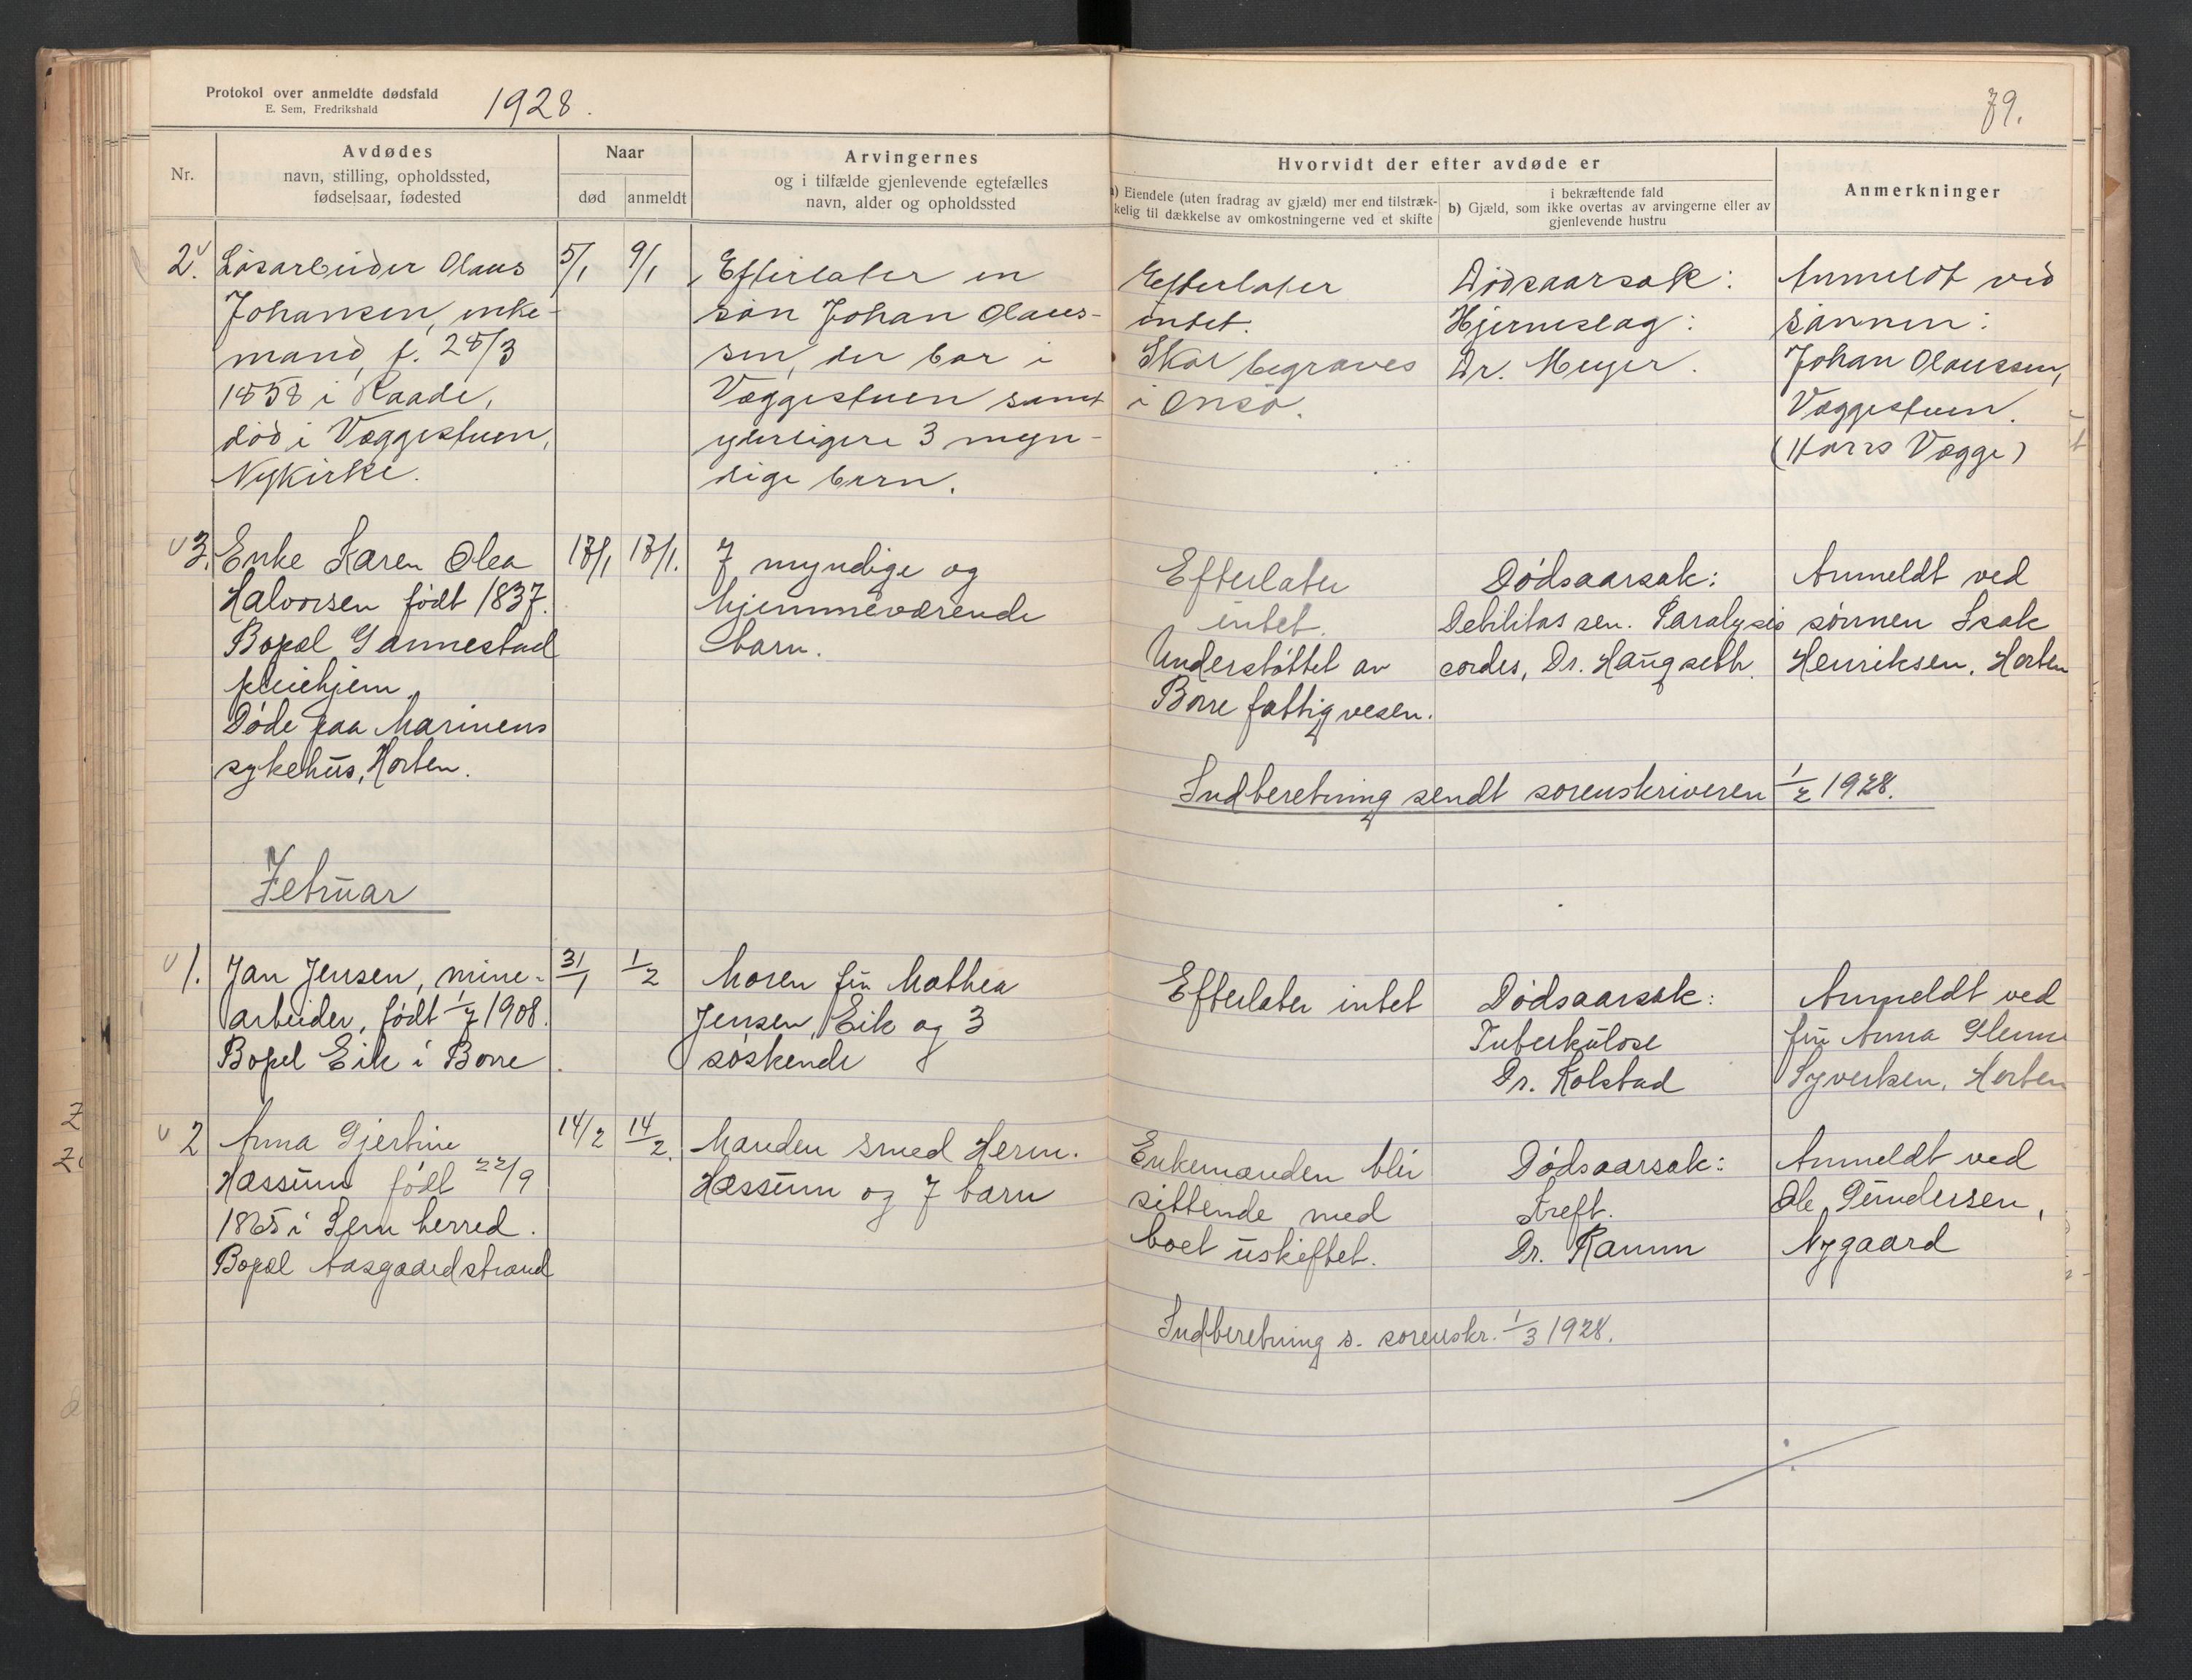 Protokol over anmeldte dødsfald
E. Sem, Fredrikshald
1928.
79.
Nr.
Avdødes
navn, stilling, opholdssted,
fødselsaar, fødested
Naar
død
anmeldt
Arvingernes
og i tilfælde gjenlevende egtefælles
navn, alder og opholdssted
Hvorvidt der efter avdøde er
a) Eiendele (uten fradrag av gjæld) mer end tilstræk-
kelig til dækkelse av omkostningerne ved et skifte
i bekræftende fald
b) Gjæld, som ikke overtas av arvingerne eller av
gjenlevende hustru
Anmerkninger
2.
Løsarbeider Olaus
Johansen, enke-
mand, f. 28/3
1858 i Raade,
død i Væggestuen,
Nykirke.
5/1
9/1
Efterlater en
søn Johan Olaus-
sen, der bor i
Væggestuen samt
yderligere 3 myn-
dige barn.
Efterlater
intet.
Skal begraves
i Onsø.
Dødsaarsak:
Hjerneslag:
Dr. Meyer.
Anmeldt ved
sønnen:
Johan Olaussen,
Væggestuen.
(Hans Vægge)
3.
Enke Karen Olea
Halvorsen født 1837.
Bopæl Gannestad
pleiehjem.
Døde paa Marinens
sykehus, Horten.
17/1
17/1.
7 myndige og
hjemmeværende
barn.
Efterlater
intet.
Understøttet av
Borre fattigvesen.
Dødsaarsak:
Debilitas sen. Paralysis
cordes, Dr. Haugseth.
Anmeldt ved
sønnen Isak
Henriksen, Horten
Indberetning sendt sorenskriveren 1/2 1928.
Februar
1.
Jan Jensen, mine-
arbeider, født 1/7 1908.
Bopel Eik i Borre
31/1
1/2
Moren fru Mathea
Jensen, Eik og 3
søskende
Efterlater intet
Dødsaarsak:
Tuberkulose
Dr. Kolstad
Anmeldt ved
fru Anna
Syvertsen, Horten
2
Anna Gjertine
Hassum født 22/9
1865 i Sem herred.
Bopæl Aasgaardstrand
14/2
14/2.
Manden smed Herm.
Hassum og 7 barn
Enkemanden blir
sittende med
boet uskiftet.
Dødsaarsak:
Kreft.
Dr. Ramm
Anmeldt ved
Ole Gundersen,
Nygaard
Indberetning s. sorenskr. 1/3 1928.